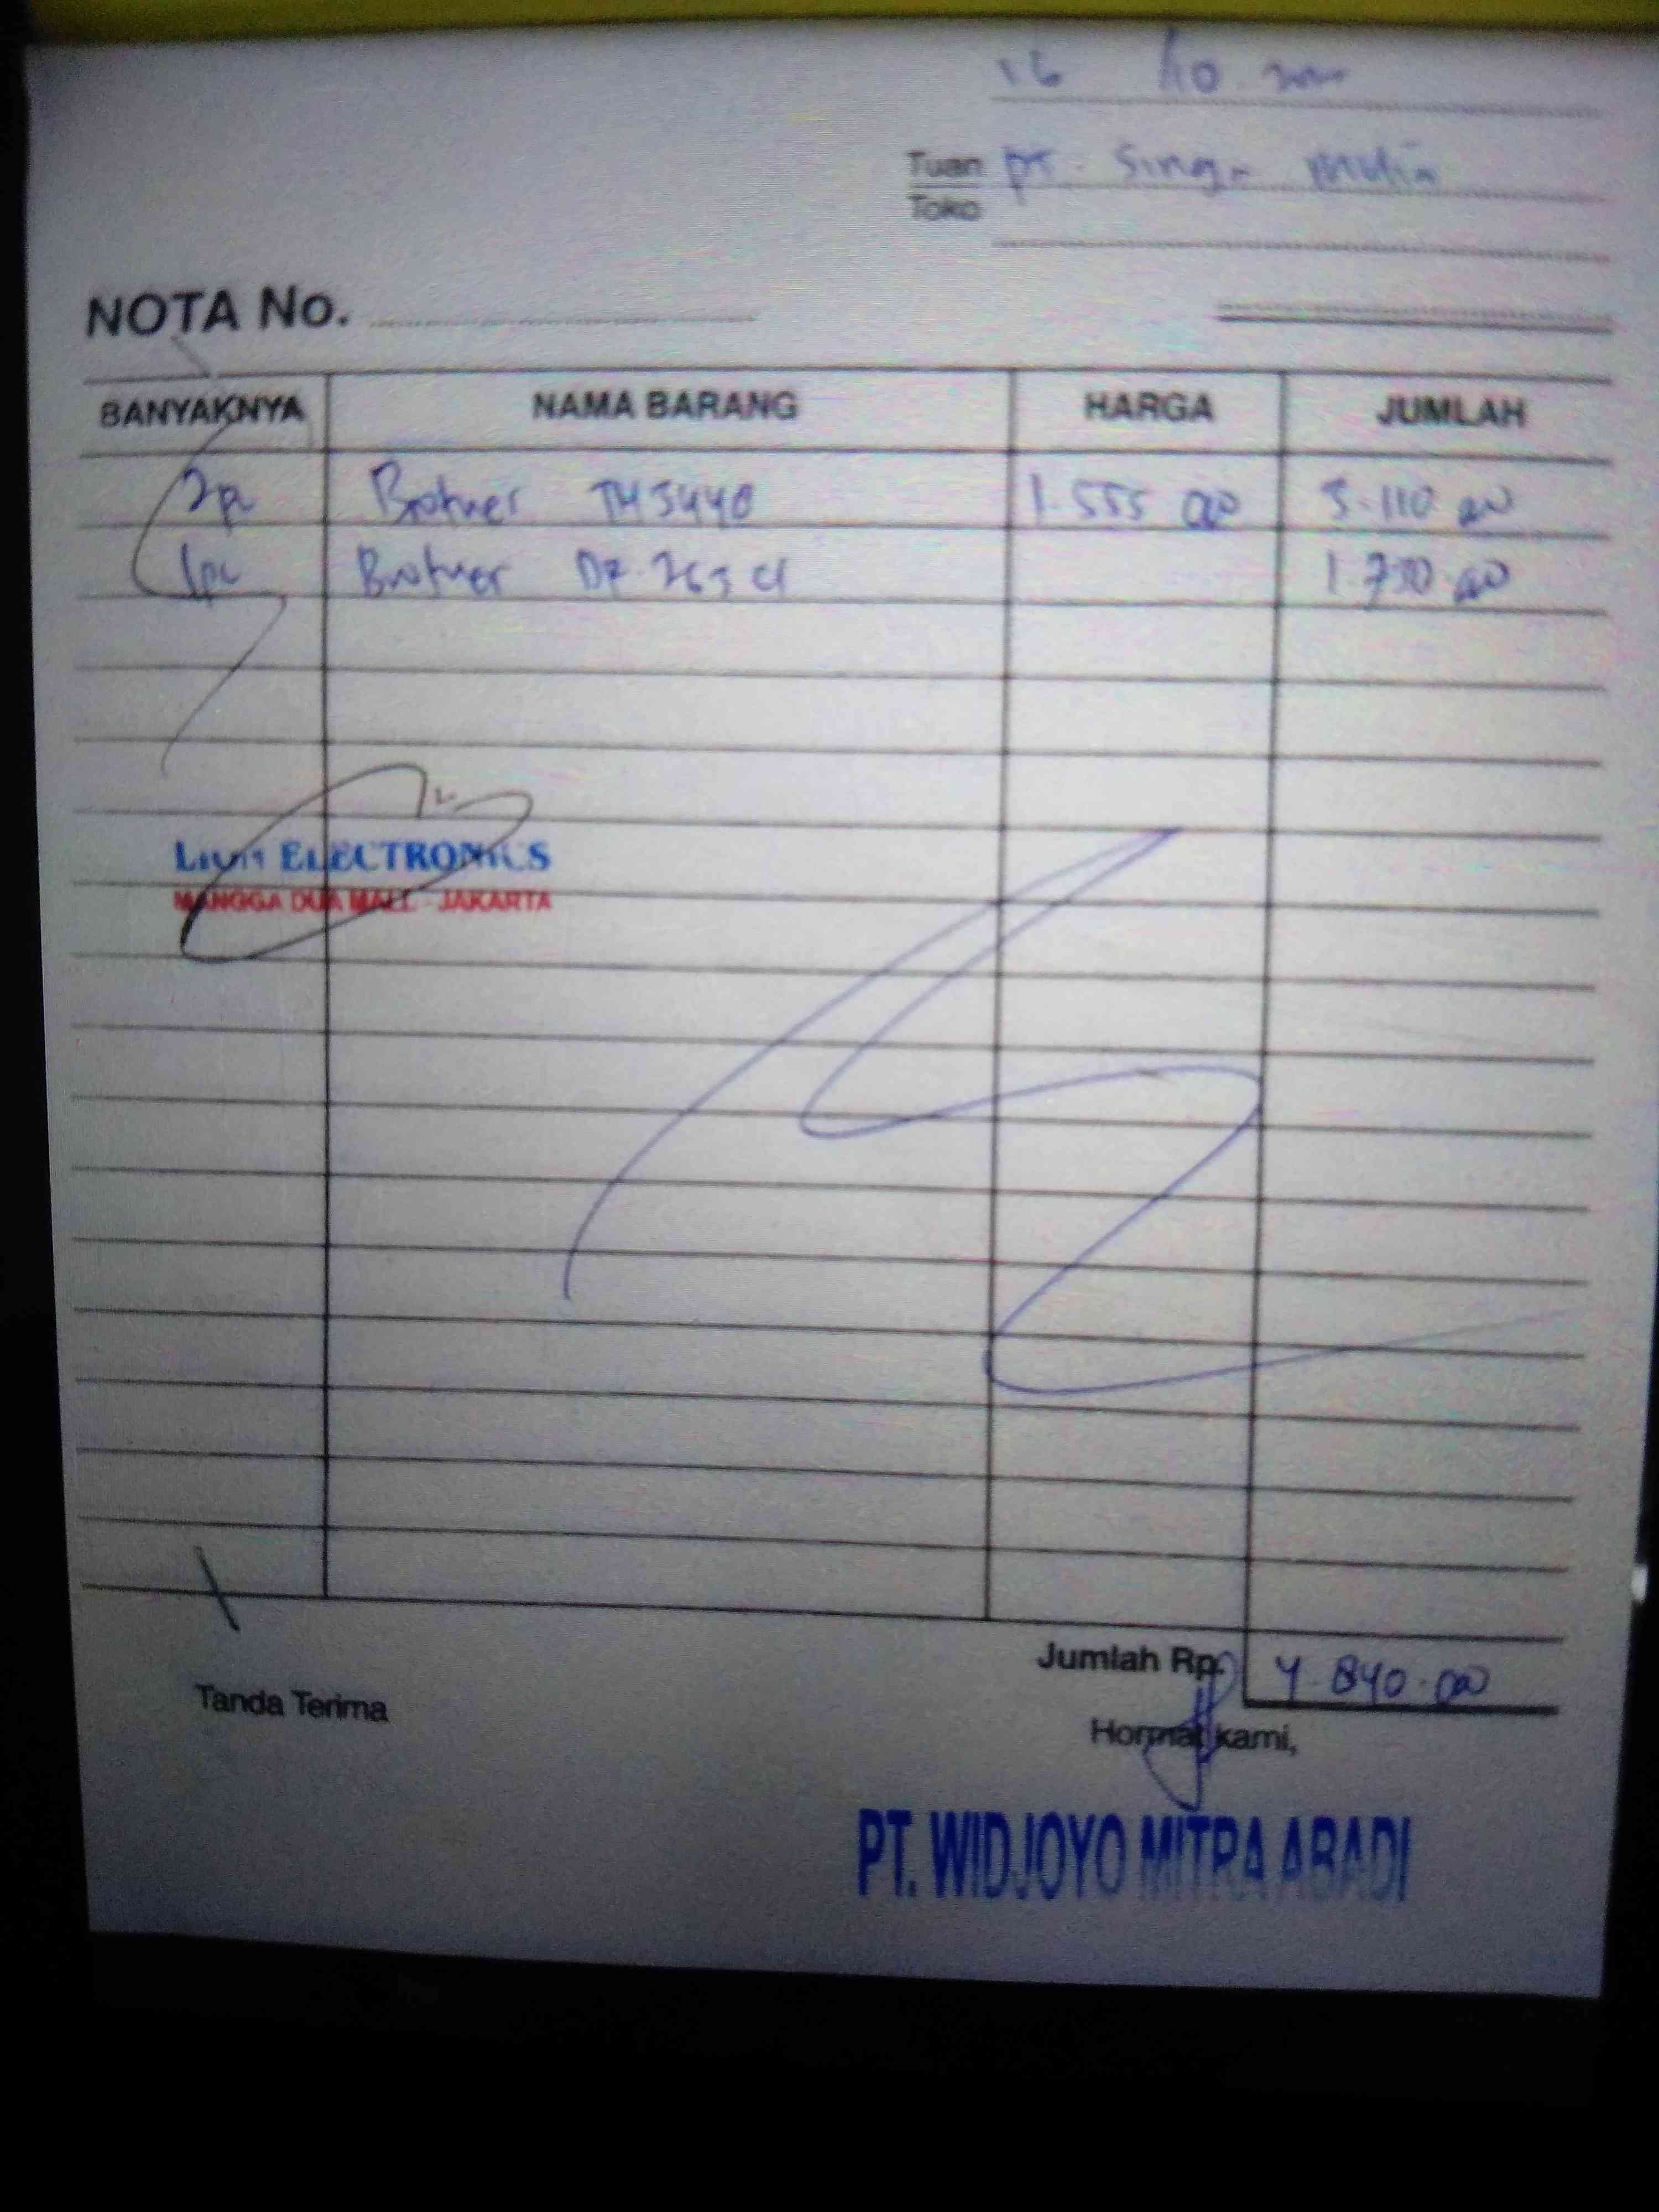 16 /10.
Tuan PT. Singa Mulia
Toko
NOTA No.
BANYAKNYA NAMA BARANG HARGA JUMLAH
2pc Brother TN 3448 1.555.000 3.110.000
1pc Brother 263 cl 1.730.000
ELECTRONICS
MANGGA DUA MALL - JAKARTA
Jumlah Rp. 4.840.000
Tanda Terima
Hormat kami,
PT. WIDJOYO MITRA ABADI